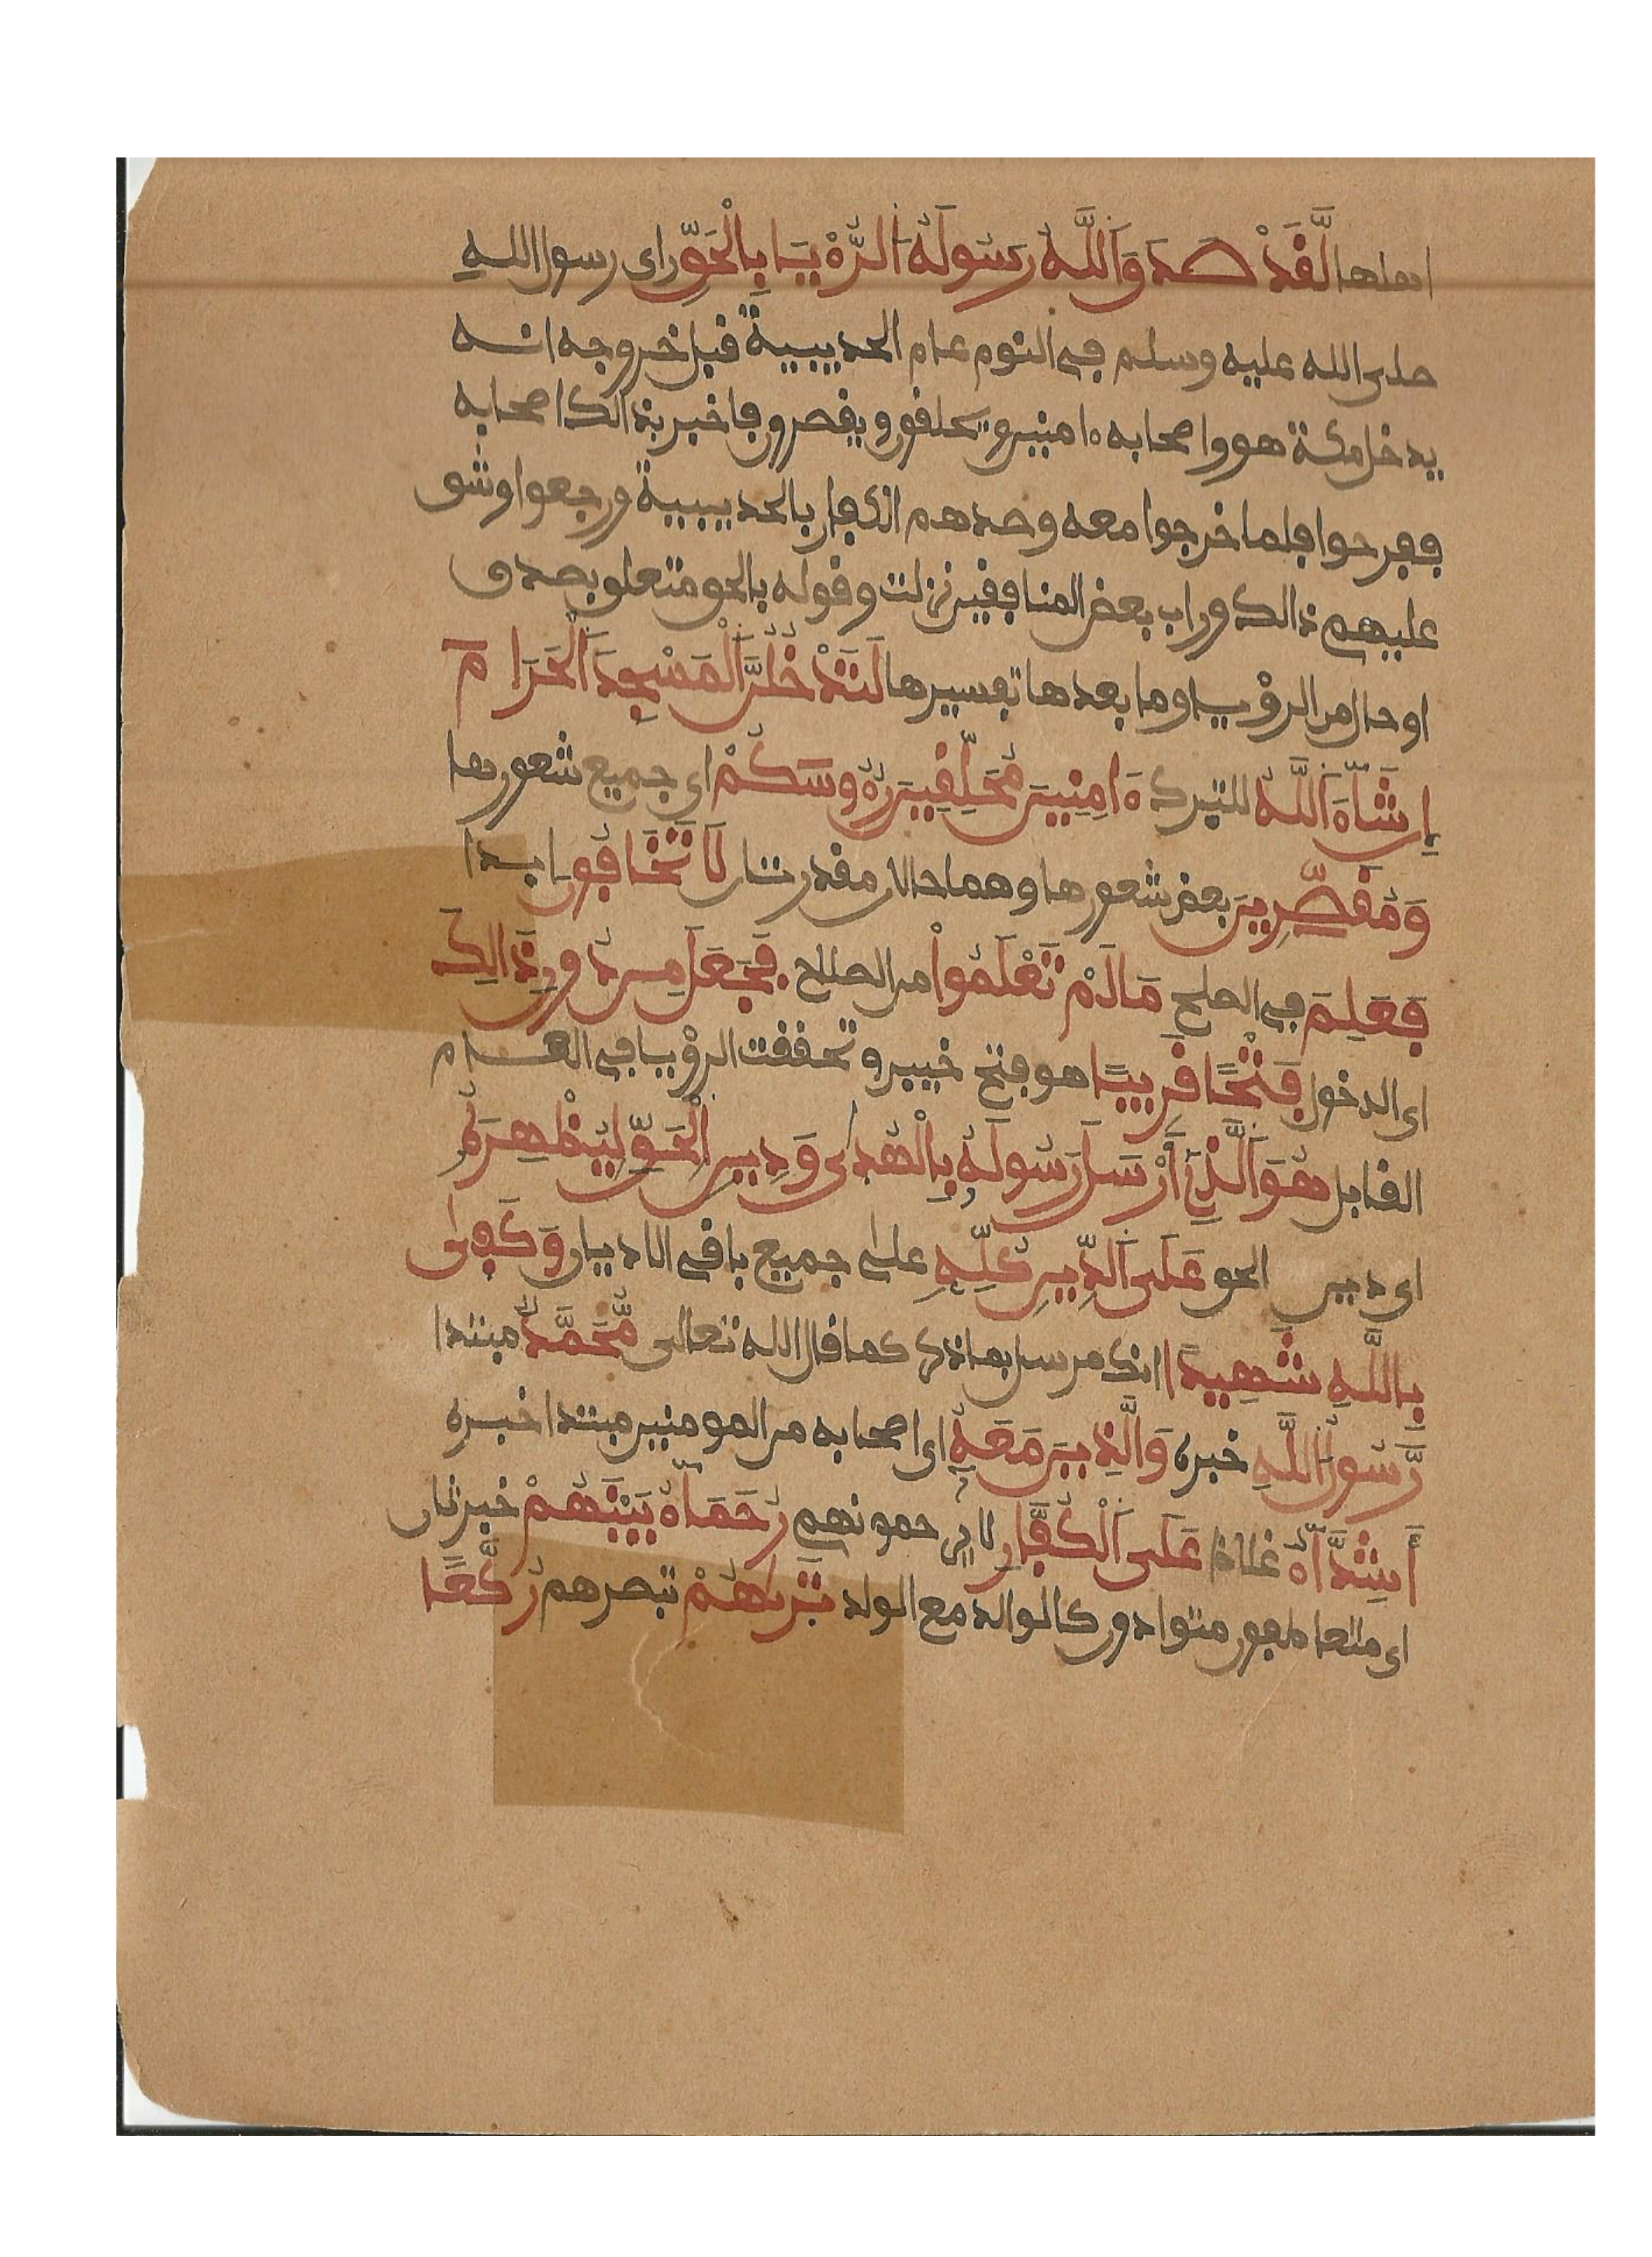 اهلها لَّقَدْ صَدَقَ اَللَّهُ رَسُولَهُ اَلرُّءْيَا بِالْحَقِّ راى رسول اللهِ
صلى الله عليه وسلم في النوم عام الحديبية قبل خروجه انه
يدخل مكة هو واصحابه ءامنين ويحلقون ويقصرون فاخبر بذالك اصحابه
ففرحوا فلما خرجوا معه وصدهم الكفار بالحديبية ورجعوا وشق
عليهم ذالك وراب بعض المنافقين نزلت وقوله بالحق متعلق بصدق
او حال من الرؤيا وما بعدها تفسيرها لَتَدْخُلُنَّ اَلْمَسْجِدَ اَلْحَرَامَ
إِن شَآءَ اَللَّهُ للتبرك ءَامِنِينَ مُحَلِّقِينَ رُءُوسَكُمْ اي جميع شعورها
وَمُقَصِّرِينَ بعض شعورها وهما حالان مقدرتان لَا تَخَافُونَ ابدا
فَعَلِمَ في الصلح مَا لَمْ تَعْلَمُواْ من الصلاح فَجَعَلَ مِن دُونِ ذَالِكَ
اى الدخول فَتْحًا قَرِيبًا هو فتح خيبر وتحققت الرؤيا في العام
القابل هُوَ اَلَّذِے أَرْسَلَ رَسُولَهُ بِالْهُدَىٰ وَدِينِ اِلْحَقِّ لِيُظْهِرَهُ
اى دين الحق عَلَى اَلدِّينِ كُلِّهِ على جميع باقي الاديان وَكَفَىٰ
بِاللَّهِ شَهِيدًا انك مرسل بما ذكر كما قال الله تعالى مُّحَمَّدٌ مبتدا
رَّسُولُ اُللَّهِ خبره وَالَّذِينَ مَعَهُ اى اصحابه من المومنين مبتدا خبره
أَشِدَّآءُ غلاظ عَلَى اَلْكُفَّارِ لا يرحمونهم رُحَمَآءُ بَيْنَهُمْ خبر ثان
اى متعاطفون متوادون كالوالد مع الولد تَرَىٰهُمْ تبصرهم رُكَّعًا